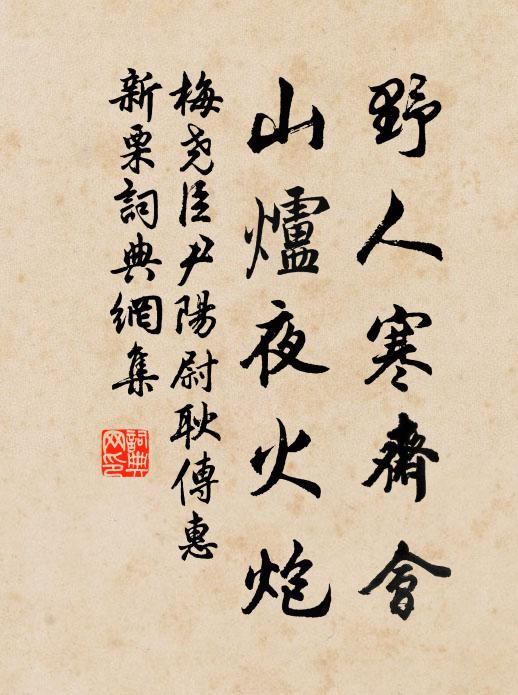 野人寒齋會
山爐夜火炮
梅堯臣尹陽尉耿傳惠
新栗詞典網集
詞典網印